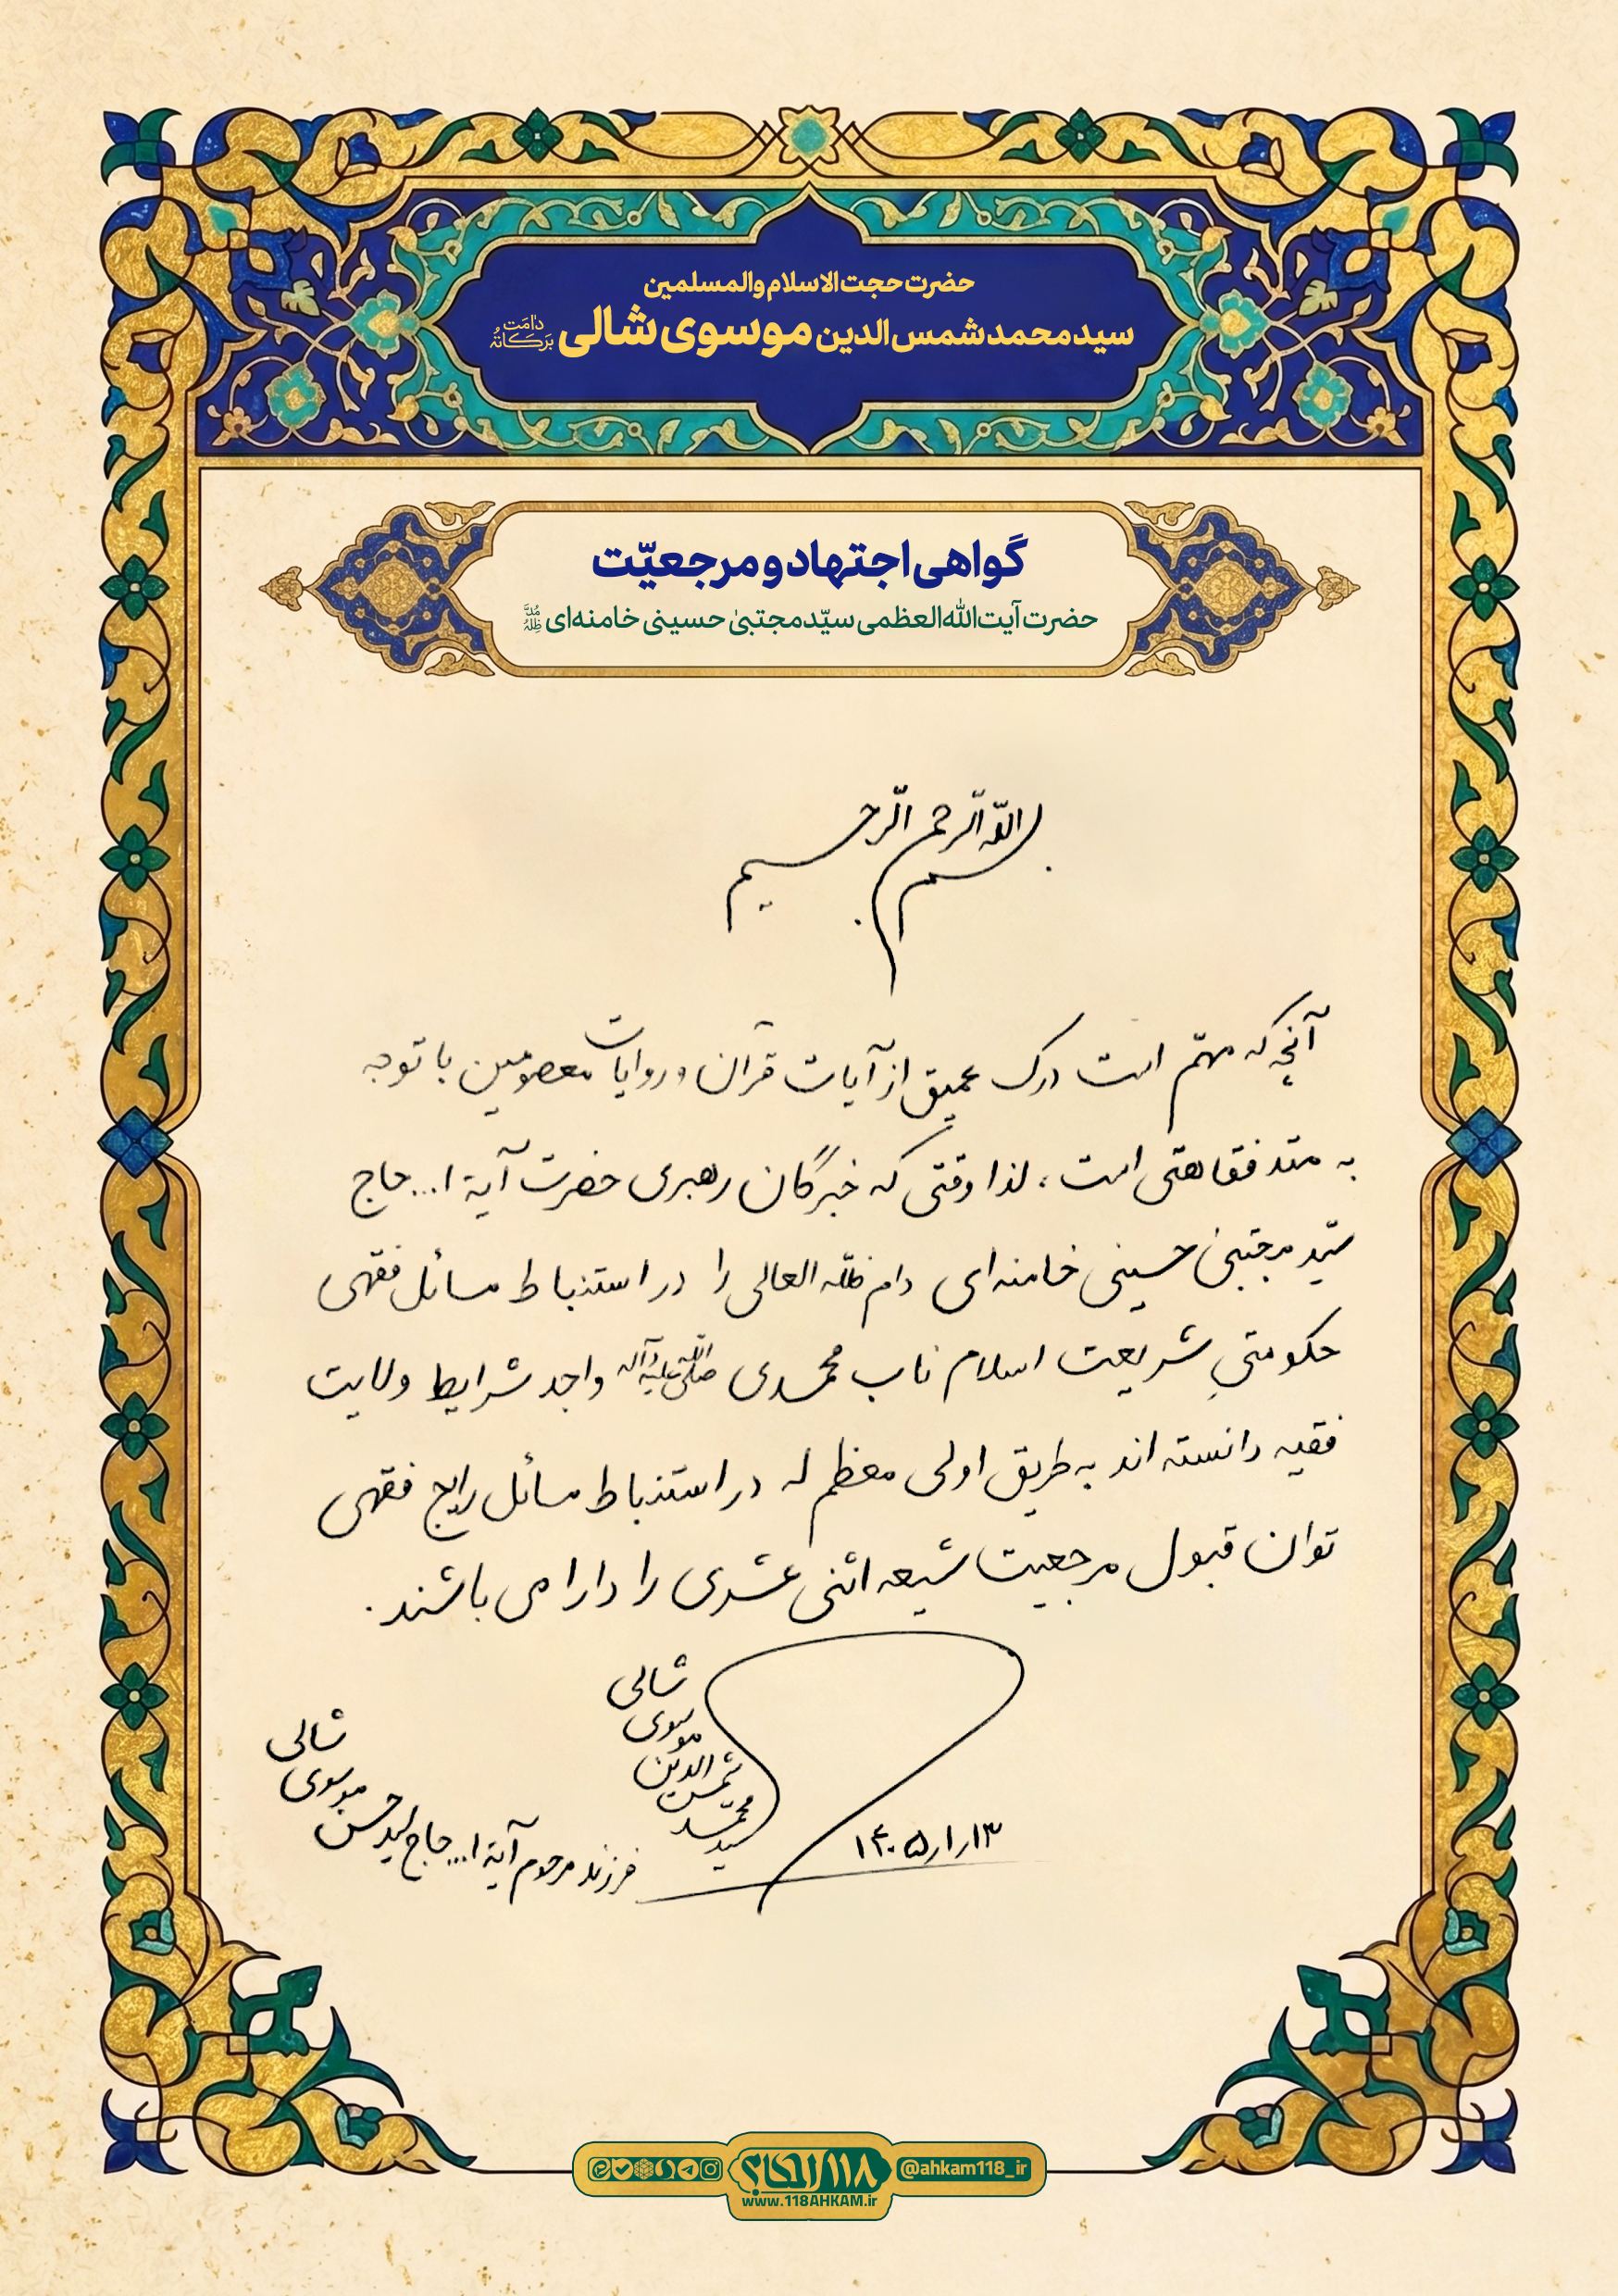 حضرت حجت الاسلام والمسلمین
سید محمد شمس الدین موسوی شالی دامَت بَرَکاتُهُ
گواهی اجتهاد و مرجعیّت
حضرت آیت‌الله‌العظمی سیّد مجتبیٰ حسینی خامنه‌ای مُدَّ ظِلُّهُ
بسم الله الرحمن الرحیم
آنچه که مهمّ است درک عمیق از آیات قرآن و روایات معصومین با توجه
به متد فقاهتی است، لذا وقتی که خبرگان رهبری حضرت آیة ا... حاج
سیّد مجتبی حسینی خامنه‌ای دام ظلّه العالی را در استنباط مسائل فقهی
حکومتیِ شریعت اسلام ناب محمّدی صلّی الله علیه وآله واجد شرایط ولایت
فقیه دانسته اند به طریق اولی معظم له در استنباط مسائل رایج فقهی
توان قبول مرجعیت شیعه اثنی عشری را دارا می باشند.
سید محمّد شمس الدین موسوی شالی
۱۴۰۵/۱/۱۳
فرزند مرحوم آیة ا... حاج سید حسن موسوی شالی
@ahkam118_ir
۱۱۸ احکام
www.118AHKAM.ir